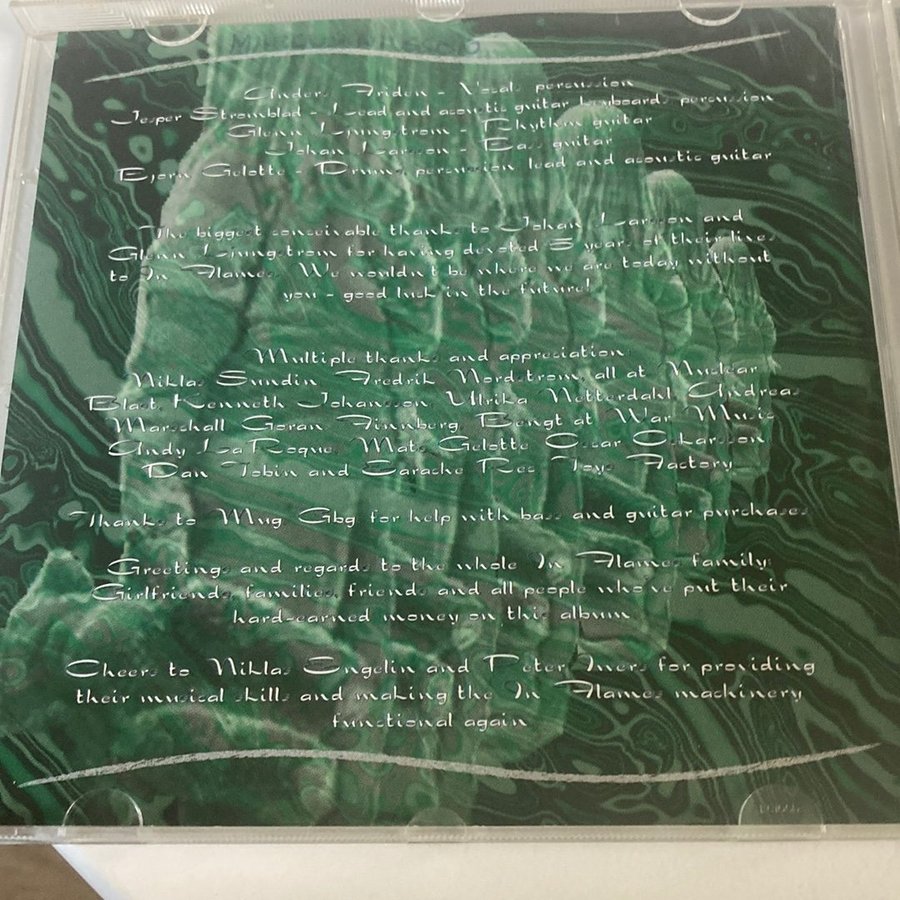 Anders Friden - Vocals percussion
Jesper Stromblad - Lead and acoustic guitar keyboards percussion
Glenn Ljungstrom - Rhythm guitar
Johan Larsson - Bass guitar
Bjorn Gelotte - Drums, percussion lead and acoustic guitar
The biggest conceivable thanks to Johan Larsson and
Glenn Ljungstrom for having devoted 5 years of their lives
to In Flames. We wouldn't be where we are today without
you - good luck in the future!
Multiple thanks and appreciation:
Niklas Sundin Fredrik Nordstrom, all at Nuclear
Blast, Kenneth Johansson Ulrika Netterdahl Andrea
Marschall Goran Finnberg, Bengt at War Music
Andy LaRoque, Mats Gelotte Oscar Oskarsson
Dan Tobin and Earache Rec Toys Factory
Thanks to Mug Gbg for help with bass and guitar purchases
Greetings and regards to the whole In Flames family:
Girlfriends, families, friends and all people who've put their
hard-earned money on this album
Cheers to Niklas Engelin and Peter Iwers for providing
their musical skills and making the In Flames machinery
functional again